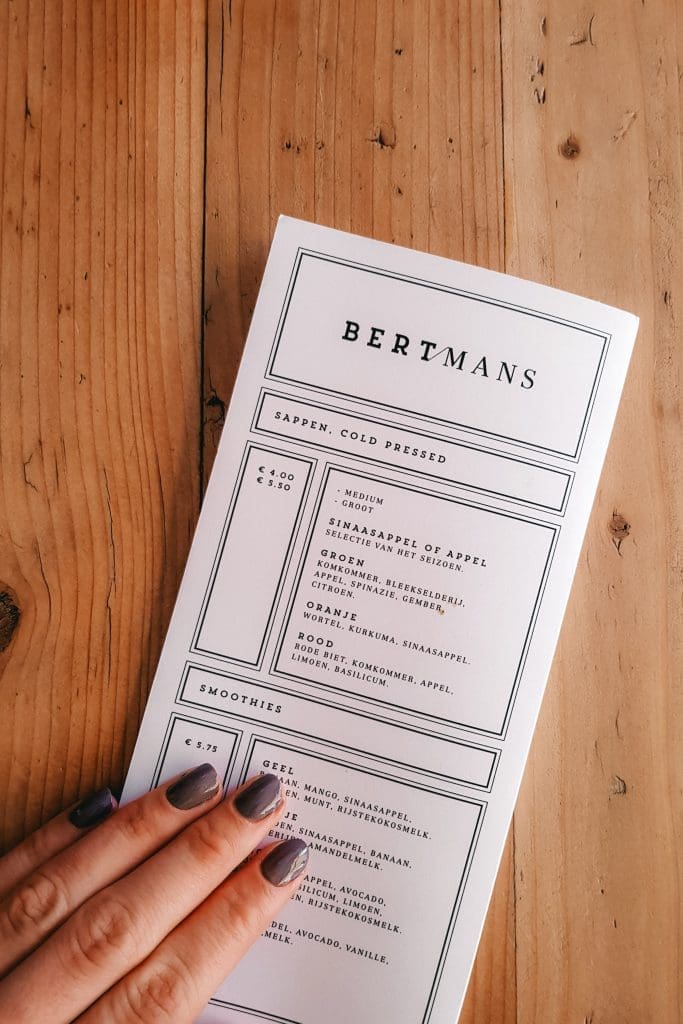 BERT/MANS
SAPPEN, COLD PRESSED
€ 4.00
€ 5.50
- MEDIUM
- GROOT
SINAASAPPEL OF APPEL
SELECTIE VAN HET SEIZOEN.
GROEN
KOMKOMMER, BLEEKSELDERIJ,
APPEL, SPINAZIE, GEMBER,
CITROEN.
ORANJE
WORTEL, KURKUMA, SINAASAPPEL.
ROOD
RODE BIET, KOMKOMMER, APPEL,
LIMOEN, BASILICUM.
SMOOTHIES
€ 5.75
GEEL
MANGO, SINAASAPPEL,
MUNT, RIJSTEKOKOSMELK.
SINAASAPPEL, BANAAN,
AMANDELMELK.
AVOCADO,
LIMOEN,
RIJSTEKOKOSMELK.
AVOCADO, VANILLE,